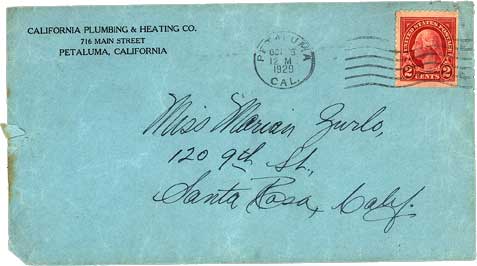 CALIFORNIA PLUMBING & HEATING CO.
716 MAIN STREET
PETALUMA, CALIFORNIA
PETALUMA
OCT
12 M
1929
CAL.
UNITED STATES POSTAGE
2 CENTS 2
Miss Marian Zurlo,
120 9th St.,
Santa Rosa, Calif.